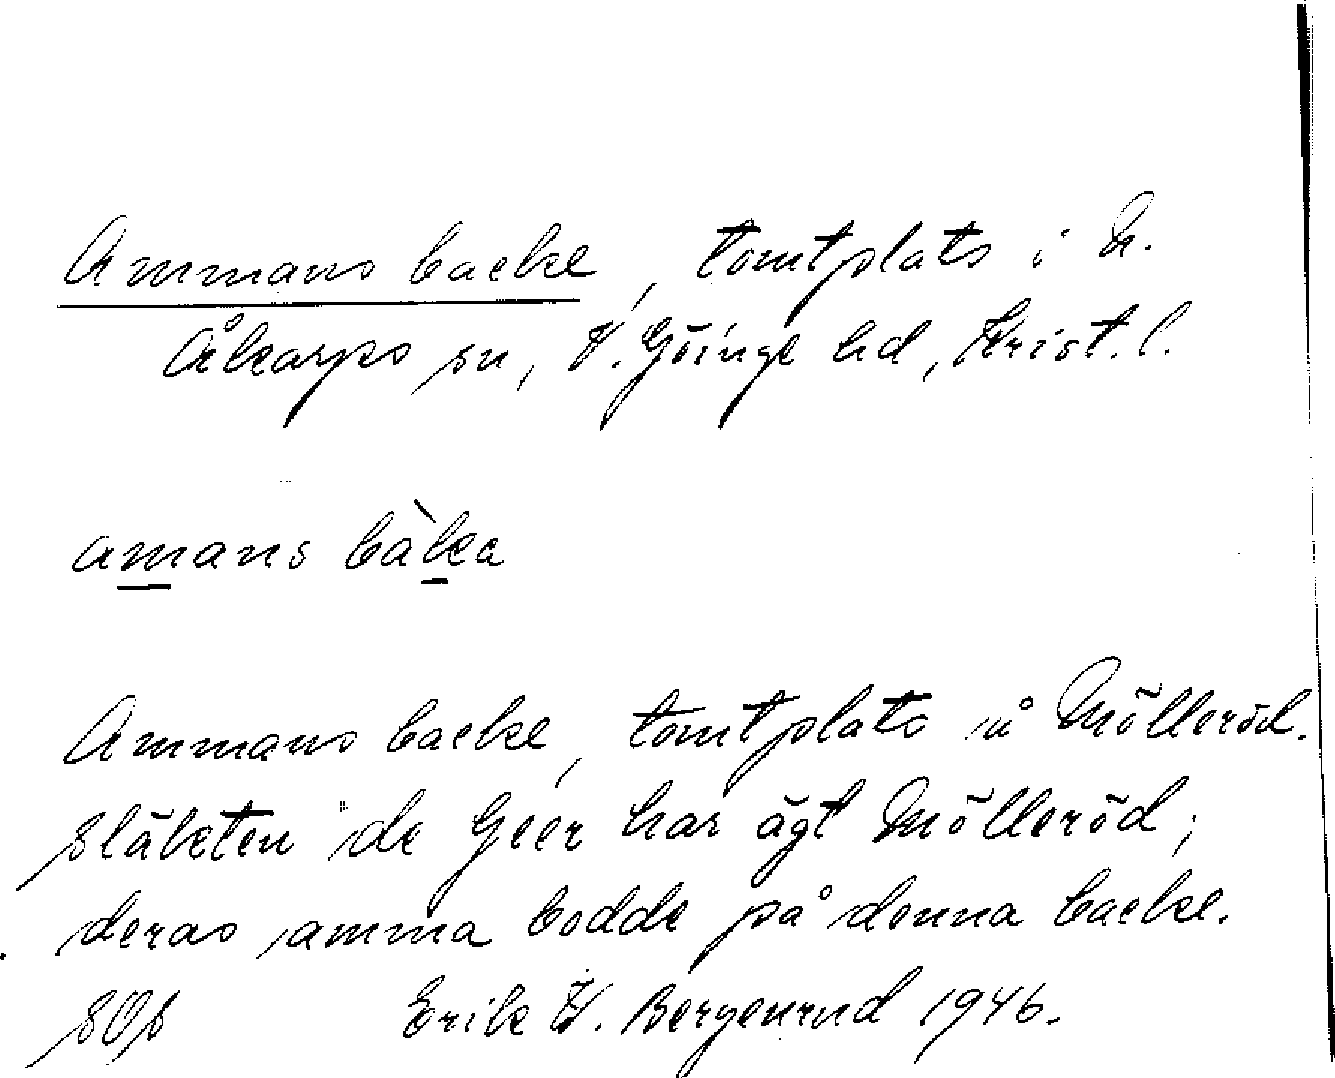 Ammans backe, tomtplats i N.
Åkarps sn, V. Göinge hd, Krist. l.
amans bàka
Ammans backe, tomtplats å Mölleröd.
Släkten de Geer har ägt Mölleröd;
deras amma bodde på denna backe.
Erik W. Bergenrud 1946.